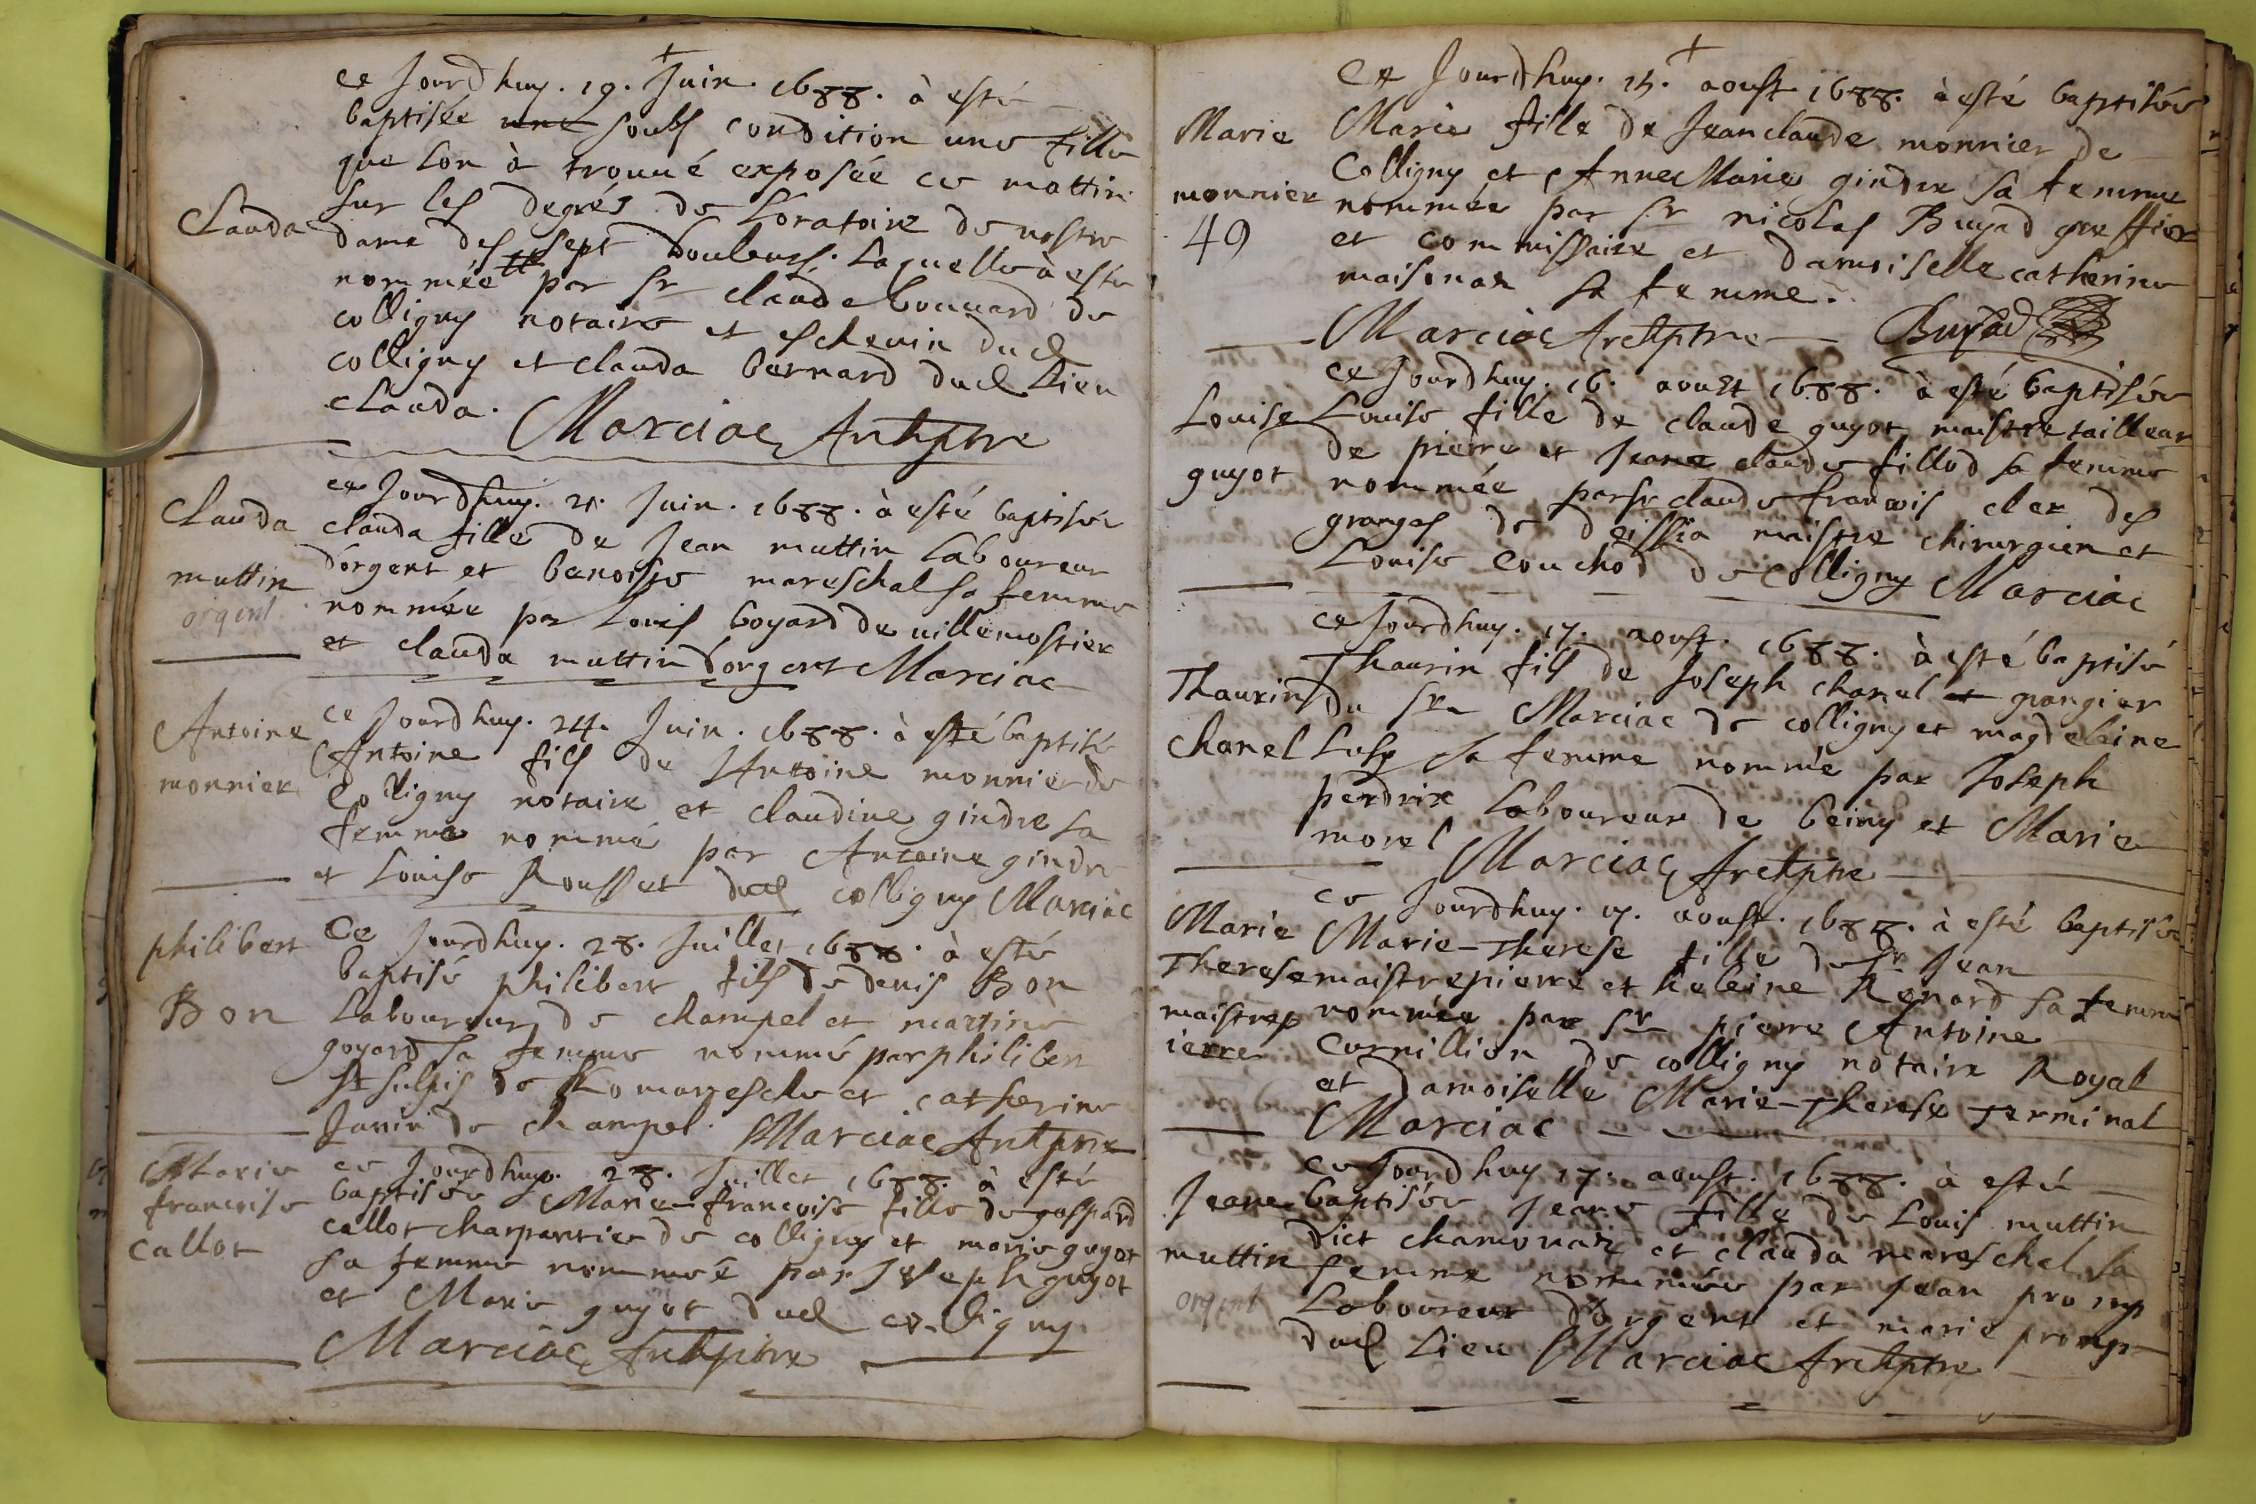 ce Jourdhuy. 19. Juin. 1688. à esté
baptisée une soubs condition une fille
que Lon à trouué exposée ce mattin
sur les degrés de Loratoire de nostre
Clauda
dame des sept douleurs. Laquelle à esté
nommée par Sr claude bouuard de
colligny notaire et eschevin dud
colligny et clauda bernard dud Lieu
clauda. Marciac Archptre
ce Jourdhuy. 21. Juin. 1688. à esté baptisée
Clauda clauda fille de Jean muttin Laboureur
muttin dorgent et benoiste mareschal sa femme
orgent nommée par Louis boyard de uillemostier
et clauda muttin dorgent Marciac
ce Jourdhuy. 24. Juin. 1688. à esté baptisé
Antoine Antoine fils de Antoine monnier de
monnier colligny notaire et claudine gindre sa
femme nommé par Antoine gindre
et Louise Rousset dud colligny Marciac
philibert Ce Jourdhuy. 28. Juillet 1688. à esté
baptisé philibert fils de denis Bon
Bon Laboureur de champel et martine
goyard sa femme nommé par philibert
St sulpis de Romanesche et catherine
Janin de champel. Marciac Archptre
Marie ce Jourdhuy. 28. Juillet 1688. à esté
francoise baptisée Marie-francoise fille de gaspard
callot callot charpantier de colligny et marie guyot
sa femme nommée par Joseph guyot
et Marie guyot dud colligny.
Marciac Archptre
Ce Jourdhuy. 15. aoust 1688. à esté baptisée
Marie Marie fille de Jeanclaude monnier de
Colligny et Anne Marie gindre sa femme
monnier nommée par Sr nicolas Buyad greffier
49 et commissaire et damoiselle catherine
maisonar sa femme.
Marciac Archptre Buyad
ce Jourdhuy. 16. aoust 1688. à esté baptisée
Louise Louise fille de claude guyot maistre tailleur
de pierre et Jeane claude fillod sa femme
guyot nommée par Sr claude francois clex des
granges de deissia maistre chirurgien et
Louise Couchod de colligny Marciac
ce Jourdhuy. 17. aoust. 1688. à esté baptisé
Thaurin fils de Joseph chanel et grangier
Thaurin du Sr Marciac de colligny et magdeleine
chanel sa femme nommé par Joseph
perdrix Laboureur de beiny et Marie
morel Marciac Archptre
ce Jourdhuy. 17. aoust. 1688. à esté baptisée
Marie Marie-Therese fille de Sr Jean
Therese maistrepierre et heleine Renard sa femme
maistrep nommée par Sr pierre Antoine
ierre Cornillion de colligny notaire Royal
et damoiselle Marie-Therese Terminal
Marciac
ce Jourdhuy 17. aoust. 1688. à esté
Jeane baptisée Jeane fille de Louis muttin
dict chamonaz et clauda mareschel sa
muttin femme nommée par Jean promp
orgent Laboureur dorgent et marie promp
dud Lieu Marciac Archptre